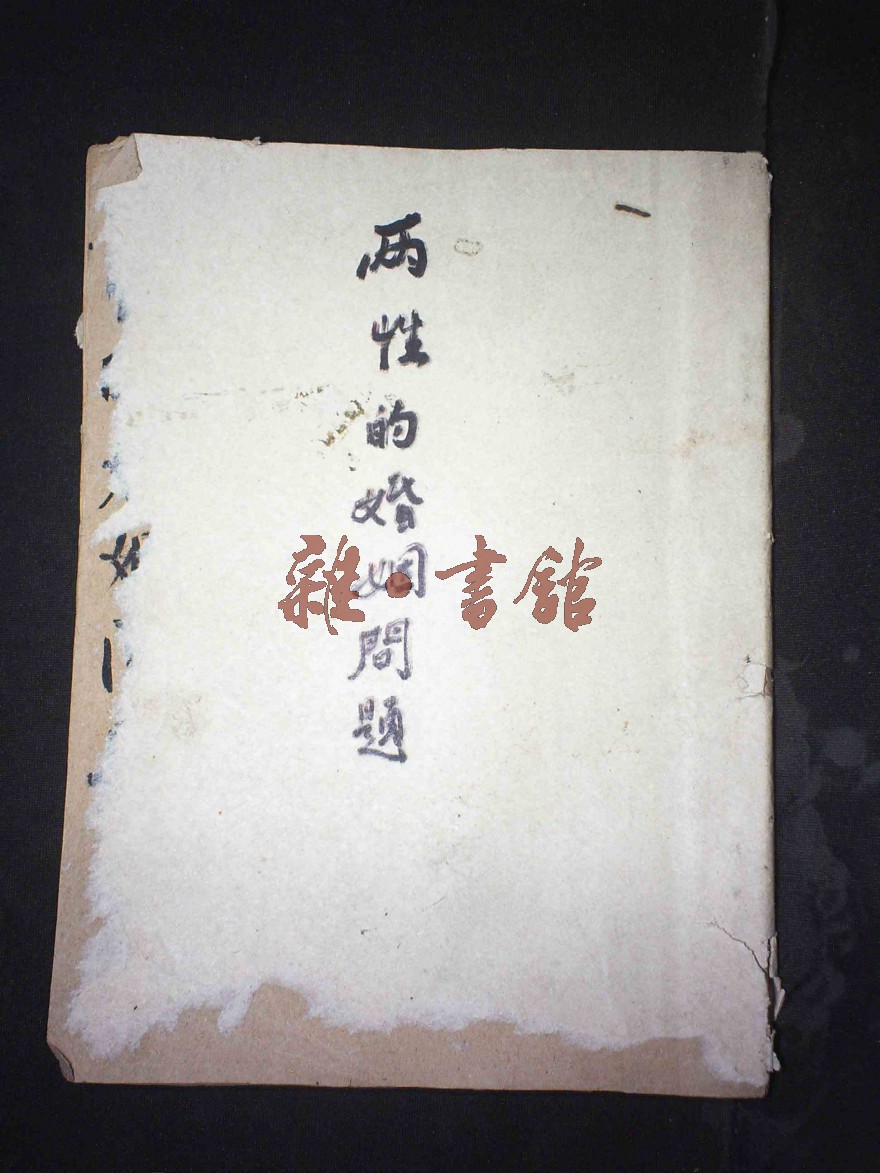 一
两性的婚姻問題
雜·書館